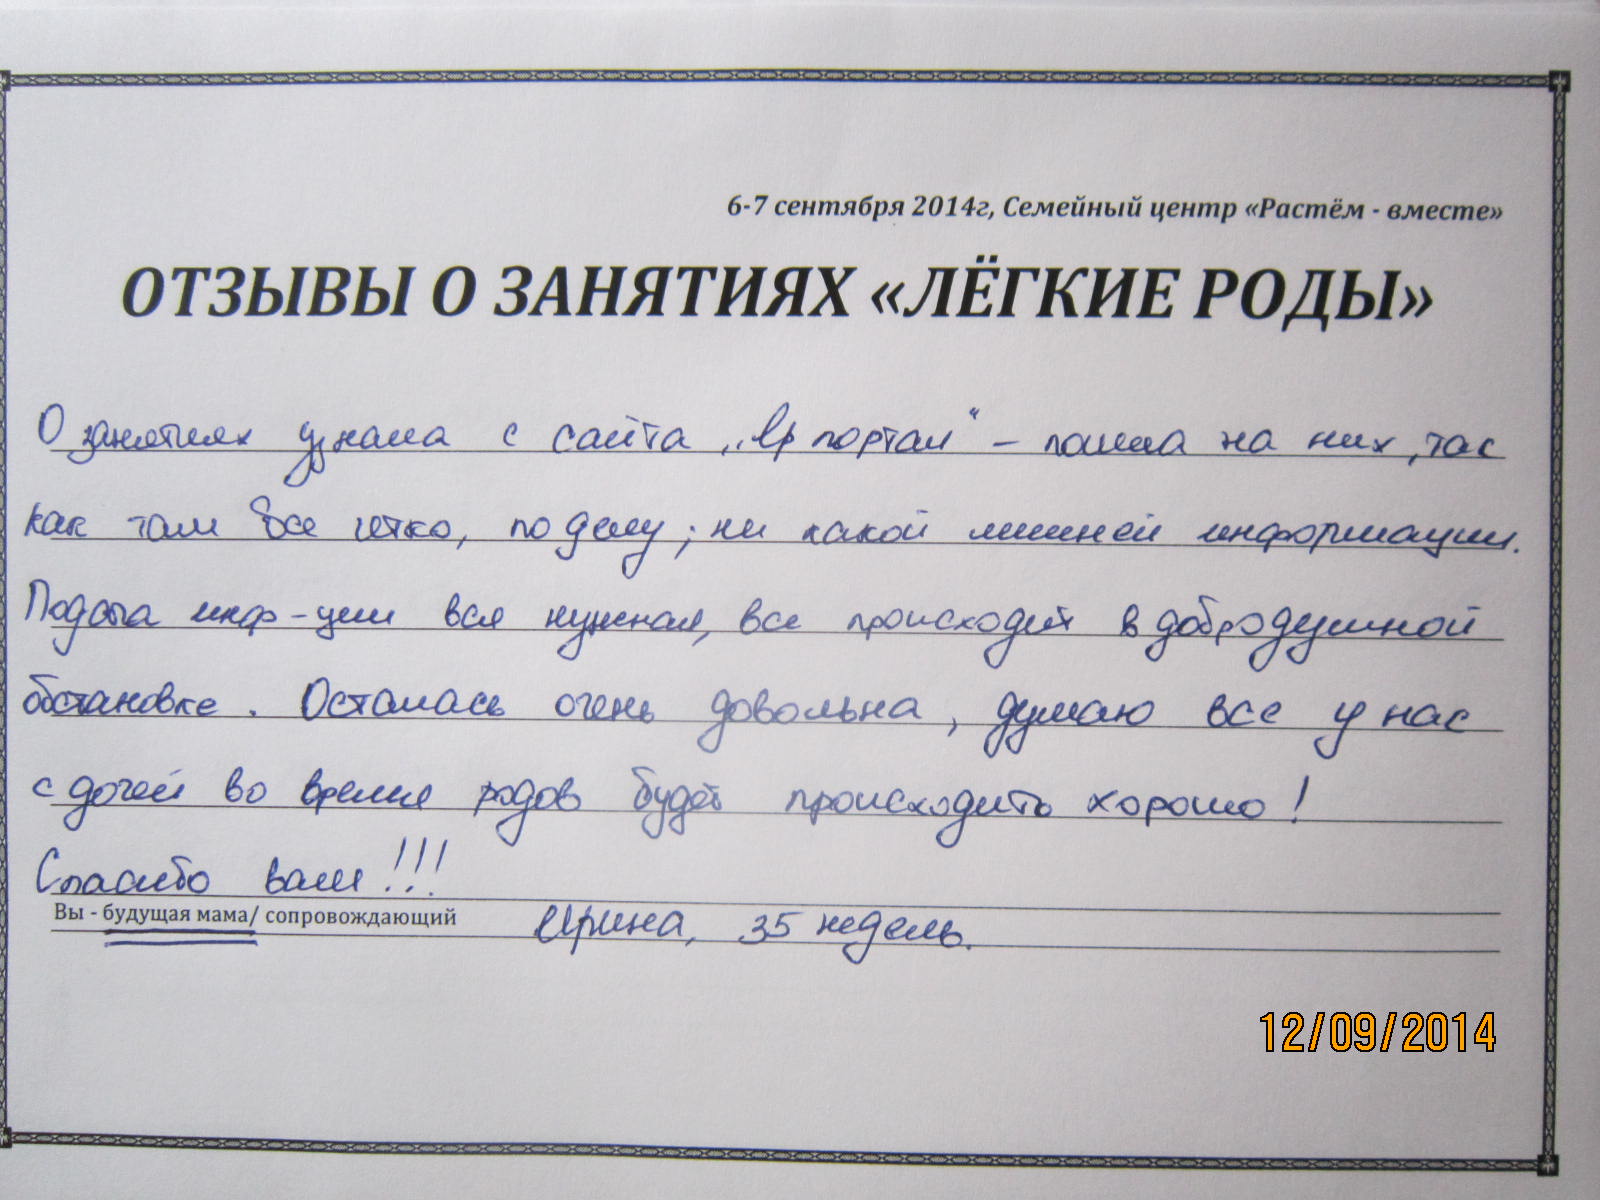 6-7 сентября 2014г, Семейный центр «Растём - вместе»
ОТЗЫВЫ О ЗАНЯТИЯХ «ЛЁГКИЕ РОДЫ»
О занятиях узнала с сайта „Ярпортал“ – пошла на них, так
как там все четко, по делу; ни какой лишней информации.
Подача инф-ции вся нужная, все происходит в добродушной
обстановке. Осталась очень довольна, думаю все у нас
с дочей во время родов будет происходить хорошо!
Спасибо вам!!!
Вы - будущая мама/ сопровождающий Ирина, 35 недель.
12/09/2014